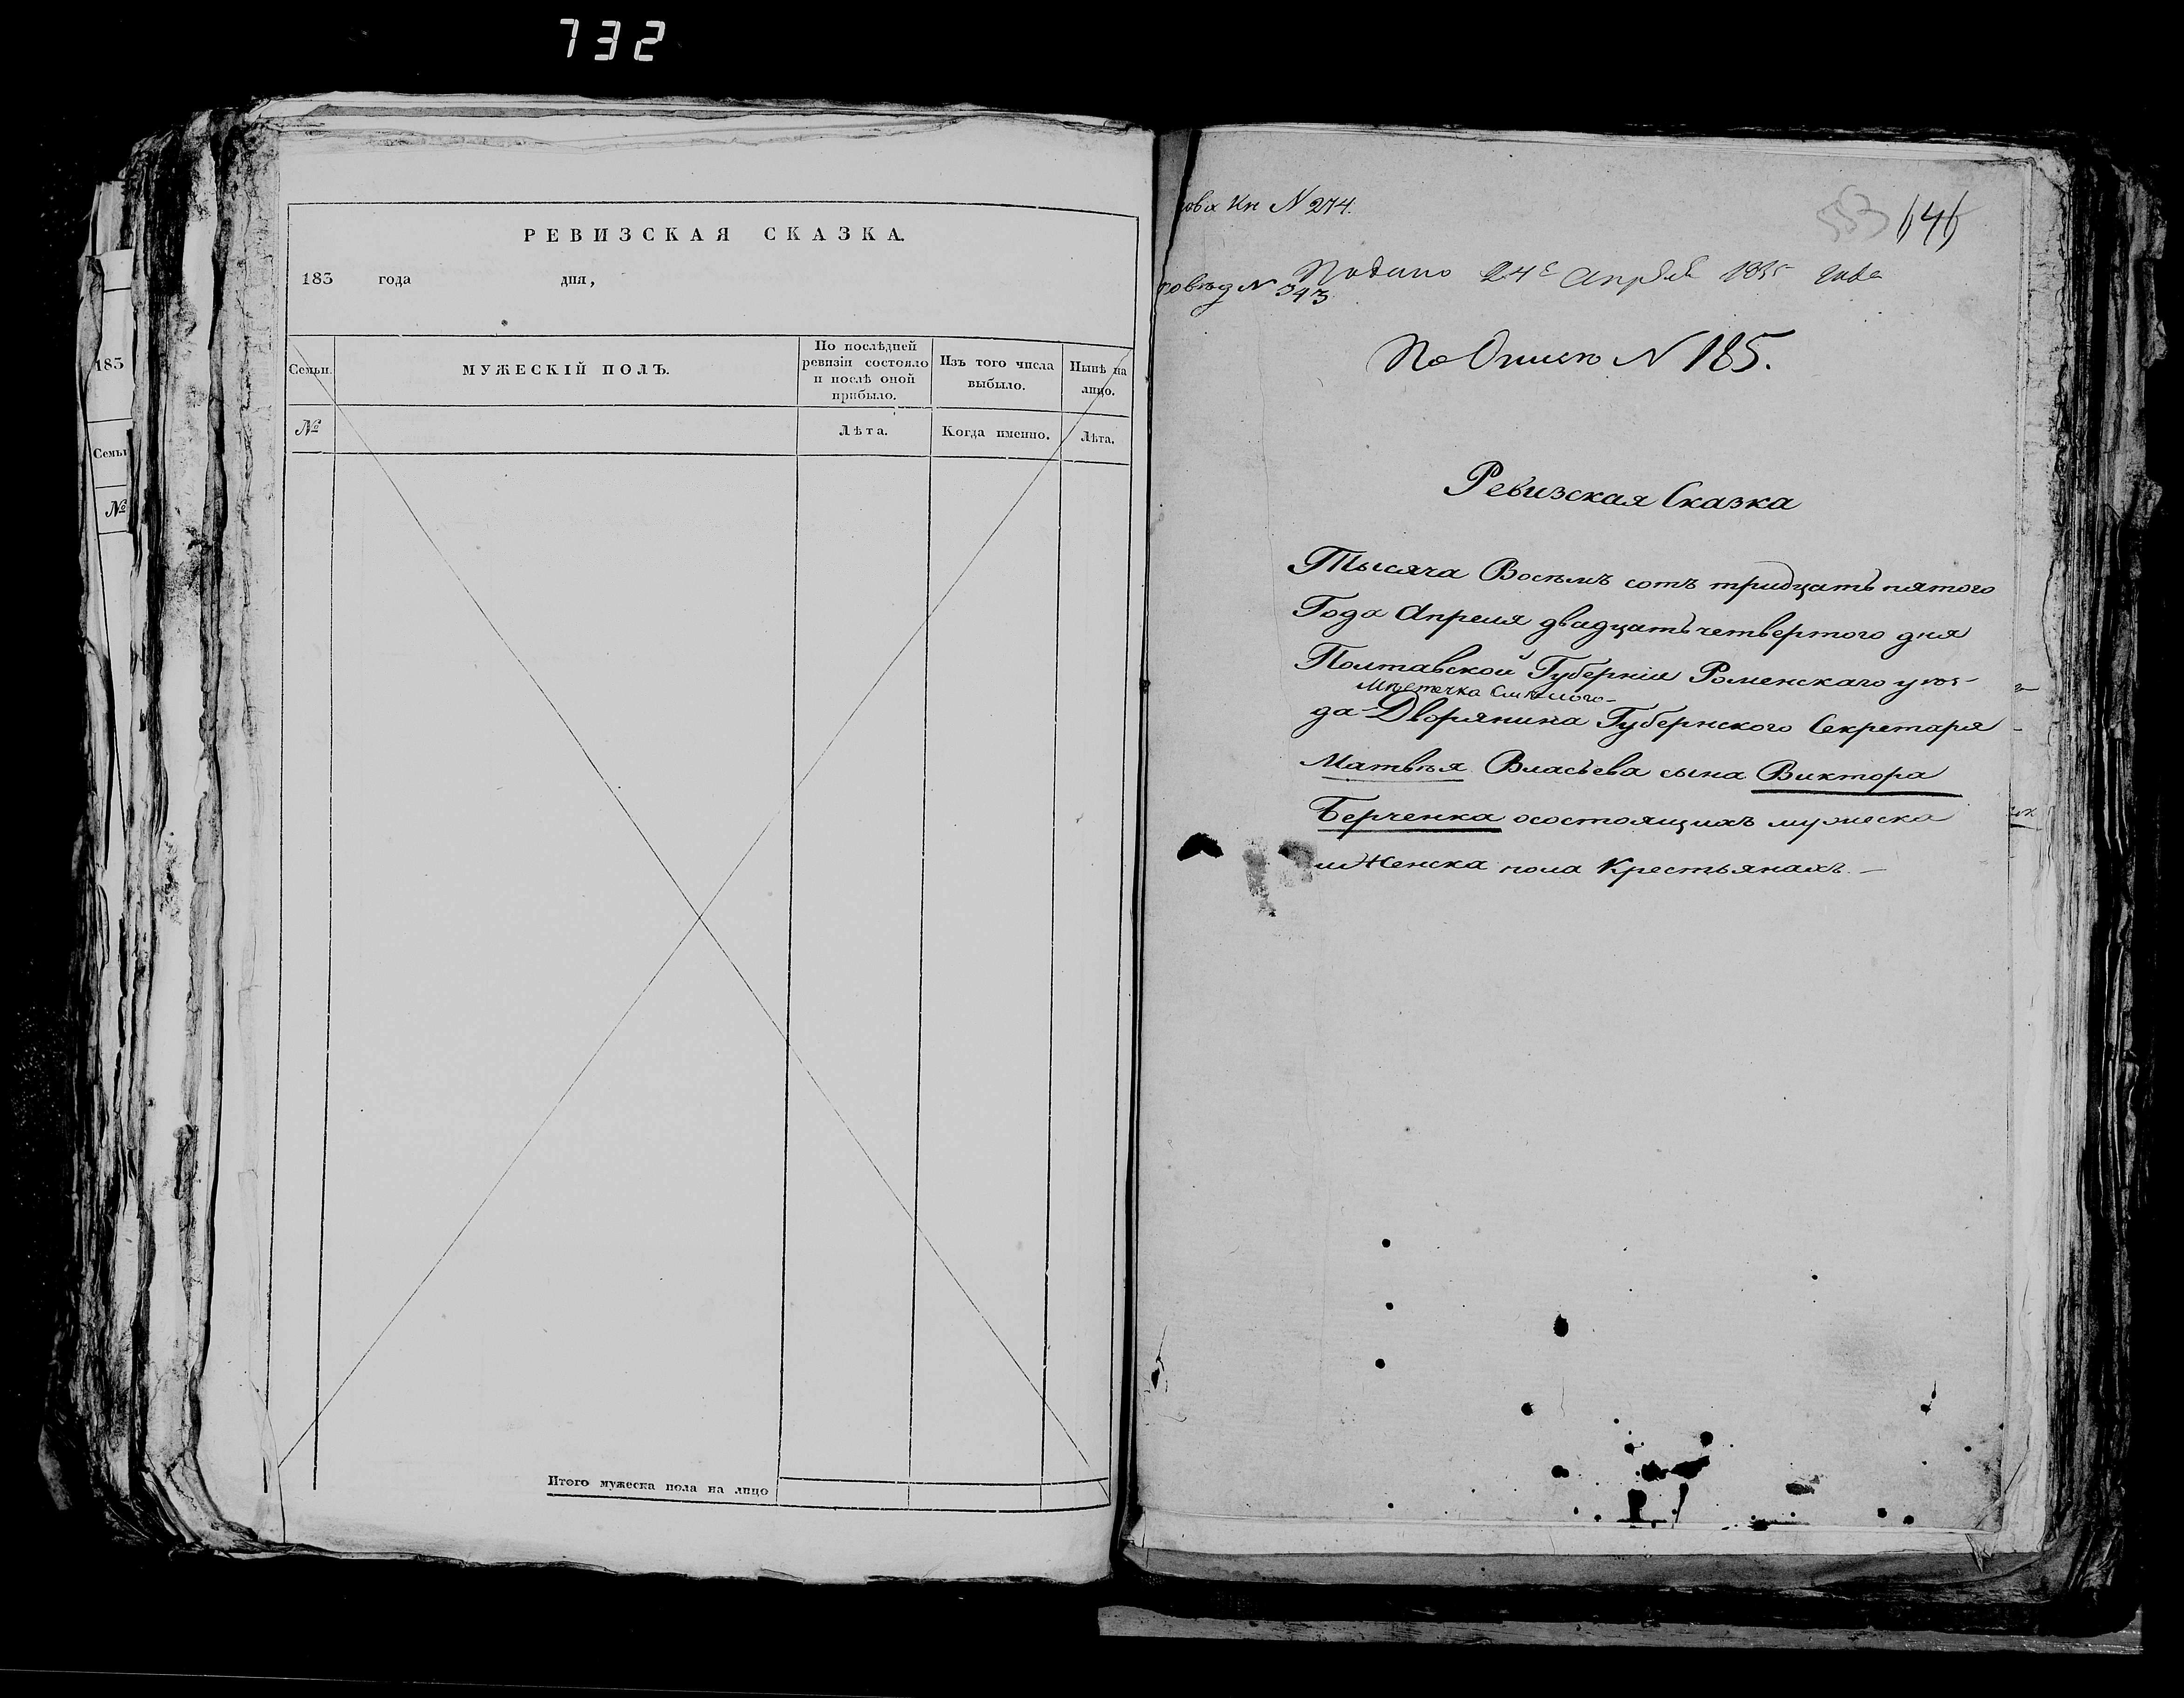 732
РЕВИЗСКАЯ СКАЗКА.
183 года дня,
Семьи.
МУЖЕСКІЙ ПОЛЪ.
По послѣдней ревизіи состояло и послѣ оной прибыло.
Изъ того числа выбыло.
Нынѣ на лицо.
№
Лѣта.
Когда именно.
Лѣта.
Итого мужеска пола на лицо
183
Семьи
№
Кн N 274.
553 646
N 343
Подано 24 Апреля 1835 года
По Описи N 185.
Ревизская Сказка
Тысяча Восемь сотъ тридцать пятого
Года Апреля двадцать четвертого дня
Полтавской Губерніи Роменскаго уез-
Местечка Смелого
да Дворянина Губернского Секретаря
Матвея Власьева сына Виктора
Берченка осостоящихъ мужеска
и Женска пола Крестьянахъ. —